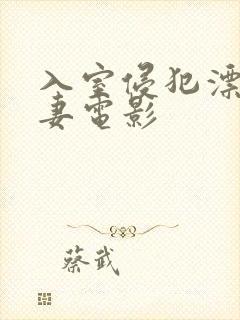 入室侵犯漂
妻电影
蔡武